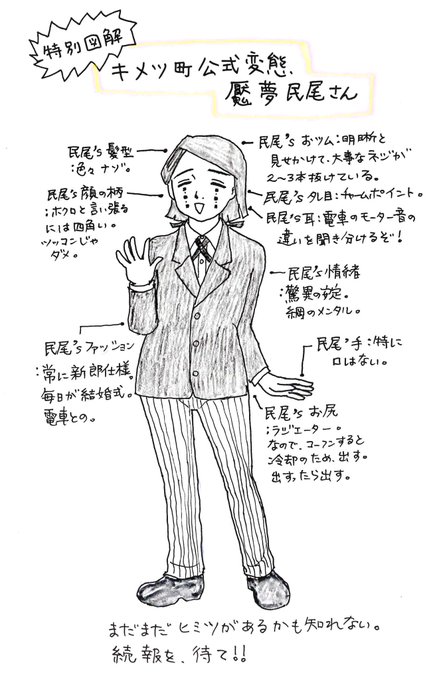 特別図解
キメツ町公式変態、
魘夢民尾さん
民尾's 髪型
:色々ナゾ。
民尾's 顔の柄
:ホクロと言い張る
には四角い。
ツッコンじゃ
ダメ。
民尾's おツム:明晰と
見せかけて、大事なネジが
2〜3本抜けている。
民尾's タレ目:チャームポイント。
民尾's 耳:電車のモーター音の
違いを聞き分けるぞ!
民尾's 情緒
:驚異の安定。
綱のメンタル。
民尾's ファッション
:常に新郎仕様。
毎日が結婚式。
電車との。
民尾' 手:特に
口はない。
民尾's お尻
:ラジエーター。
なので、コーフンすると
冷却のため、出す。
出すったら出す。
まだまだヒミツがあるかも知れない。
続報を、待て!!